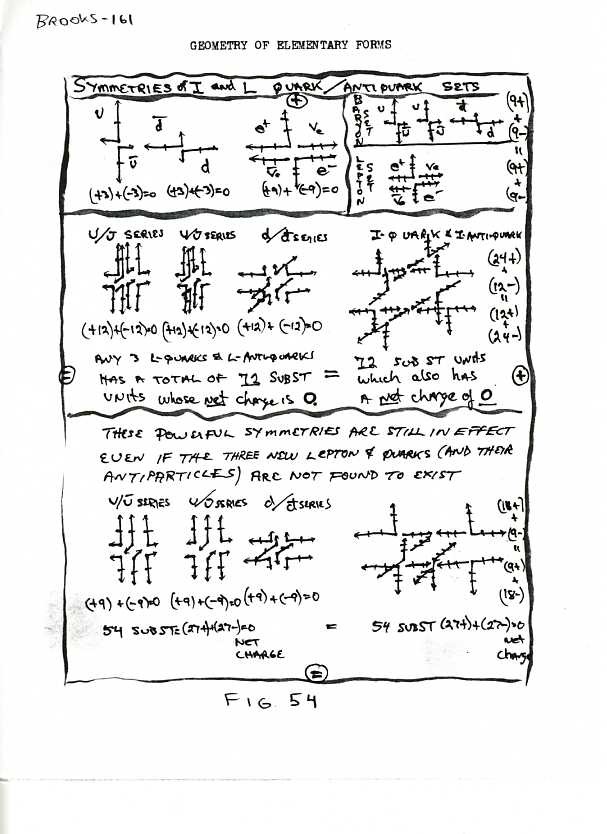 BROOKS-161
GEOMETRY OF ELEMENTARY FORMS
SYMMETRIES of I and L QUARK/ANTIQUARK SETS
+
U d̅ e⁺ Ve
U̅ d V̅e e⁻
(+3)+(-3)=0 (+3)+(-3)=0 (+9)+(-9)=0
BARYON SET
U U d̅
U̅ U̅ d
LEPTON SET
e⁺ Ve
V̅e e⁻
(9+)
+
(9-)
=
(9+)
+
(9-
U/U̅ SERIES U/U̅ SERIES d/d̅ SERIES I-QUARK & I-ANTIQUARK
(+12)+(-12)=0 (+12)+(-12)=0 (+12)+(-12)=0
(24+)
+
(12-)
=
(12+)
+
(24-)
ANY 3 L-QUARKS & L-ANTIQUARKS
HAS A TOTAL OF 72 SUBST =
UNITS whose net charge is 0.
72 SUB ST UNITS
which also has
A net charge of 0
=
+
THESE POWERFUL SYMMETRIES ARE STILL IN EFFECT
EVEN IF THE THREE NEW LEPTON & QUARKS (AND THEIR
ANTIPARTICLES) ARE NOT FOUND TO EXIST
U/U̅ SERIES U/U̅ SERIES d/d̅ SERIES
(+9)+(-9)=0 (+9)+(-9)=0 (+9)+(-9)=0
(18+)
+
(9-)
=
(9+)
+
(18-)
54 SUBST=(27+)+(27-)=0
NET
CHARGE
=
54 SUBST (27+)+(27-)=0
net
charge
=
FIG. 54